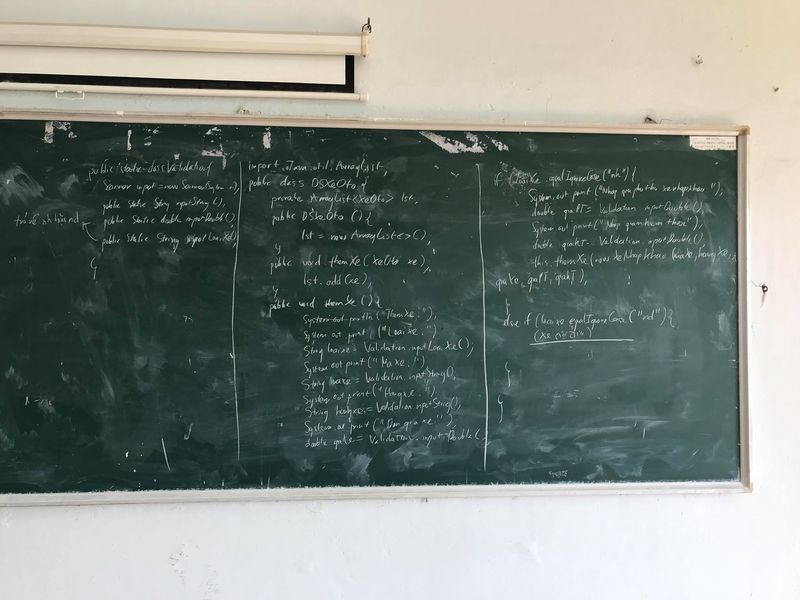 public static class Validation{
Scanner input = new Scanner(System.in),
public static String inputString(),
public static double inputDouble(),
trả về nk hoặc nd
public static String inputLoaiXe()
}
import java.util.ArrayList,
public class DSXeOto {
private ArrayList<XeOto> lst,
public DSXeOto () {
lst = new ArrayList<>(),
}
public void themXe (XeOto xe),
lst.add(xe),
}
public void themXe () {
System.out.println ("Them Xe:")
System.out.print ("Loai Xe:")
String loaixe = Validation.inputLoaiXe();
System.out.print ("Ma Xe:")
String maxe = Validation.inputString(),
System.out.print ("Hangxe:")
String hangxe = Validation.inputString(),
System.out.print ("Don gia xe:"),
double giaxe = Validation.inputDouble()
if (loaiXe.equalIgnoreCase("nk") {
System.out.print ("Nhap gia phu thu xe nhap khau"),
double giaPT = Validation.inputDouble(),
System.out.print ("Nhap gia kham theo"),
double giakT = Validation.inputDouble()
this.themXe(new XeNhapKhau(maXe, hangXe,
giaXe, giaPT, giakT),
}
else if (loaixe.equalIgnoreCase ("nd"){
}
}